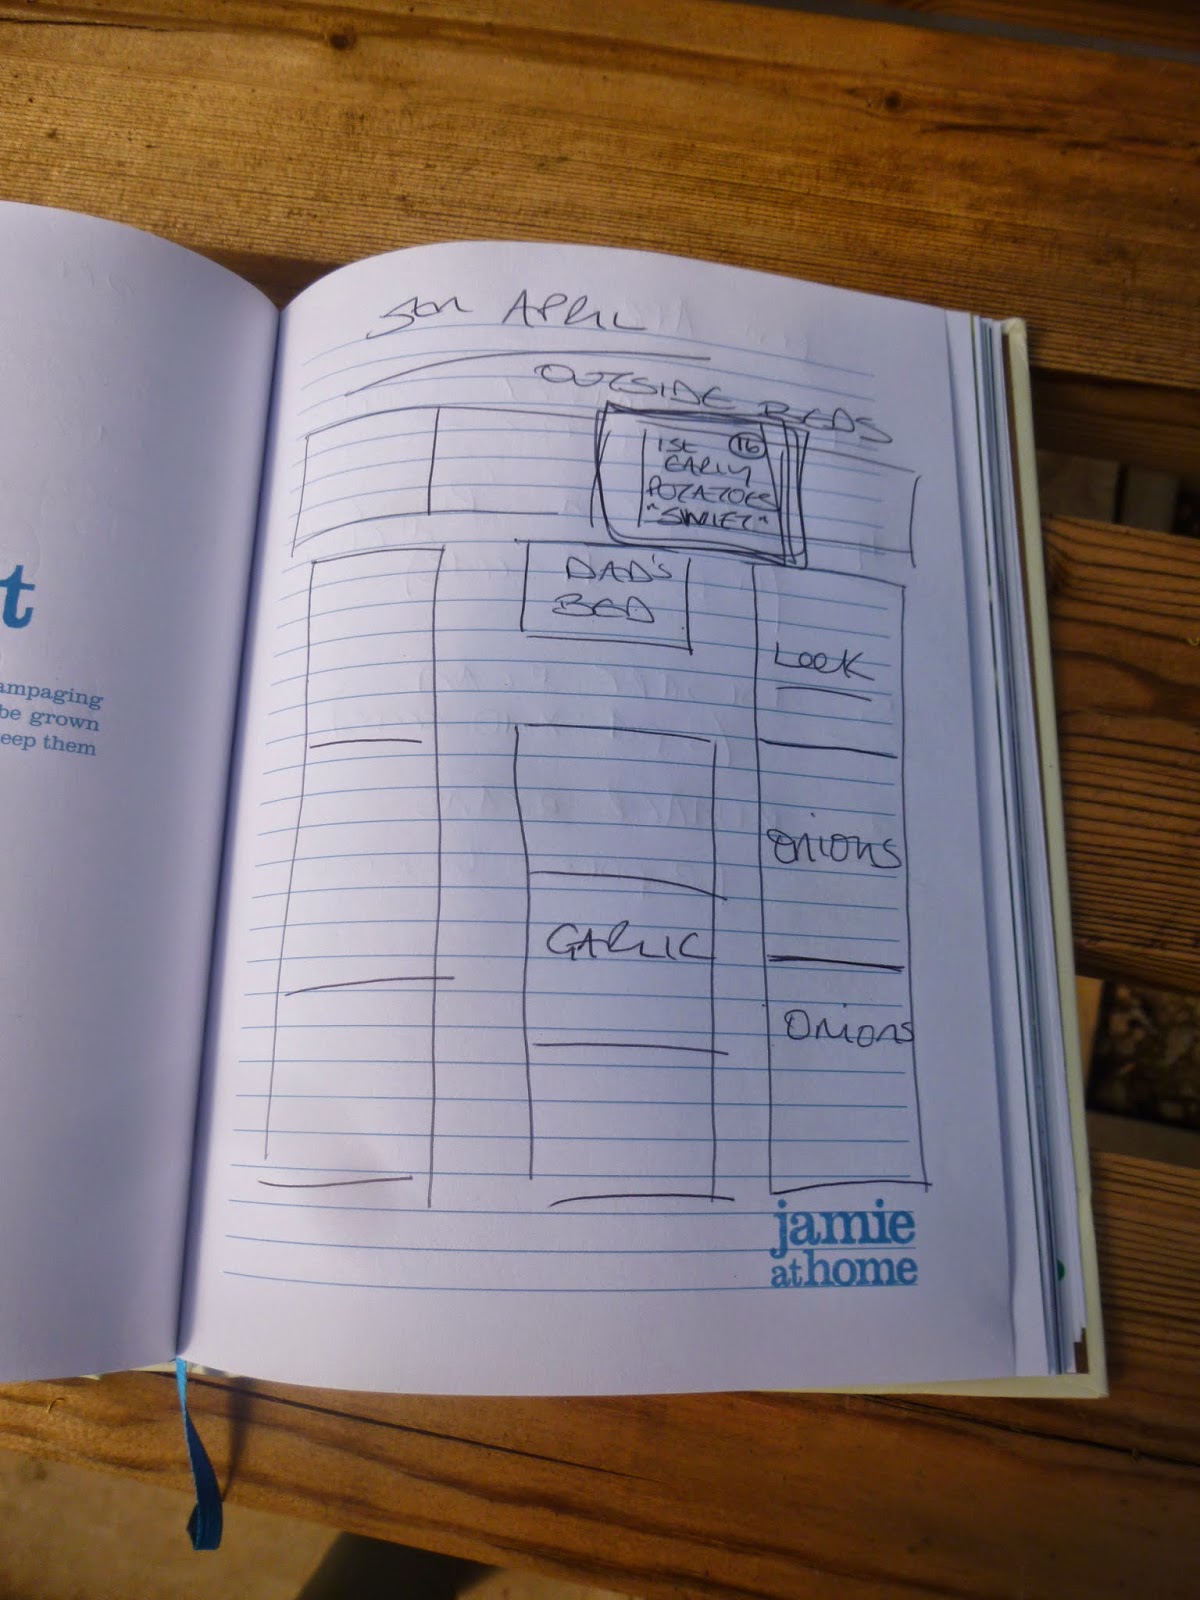 5th APRIL
OUTSIDE BEDS
1ST 16
EARLY
POTATOES
"SWIFT"
DAD'S
BED
onions
GARLIC
Onions
jamie
at home
t
ampaging
be grown
eep them